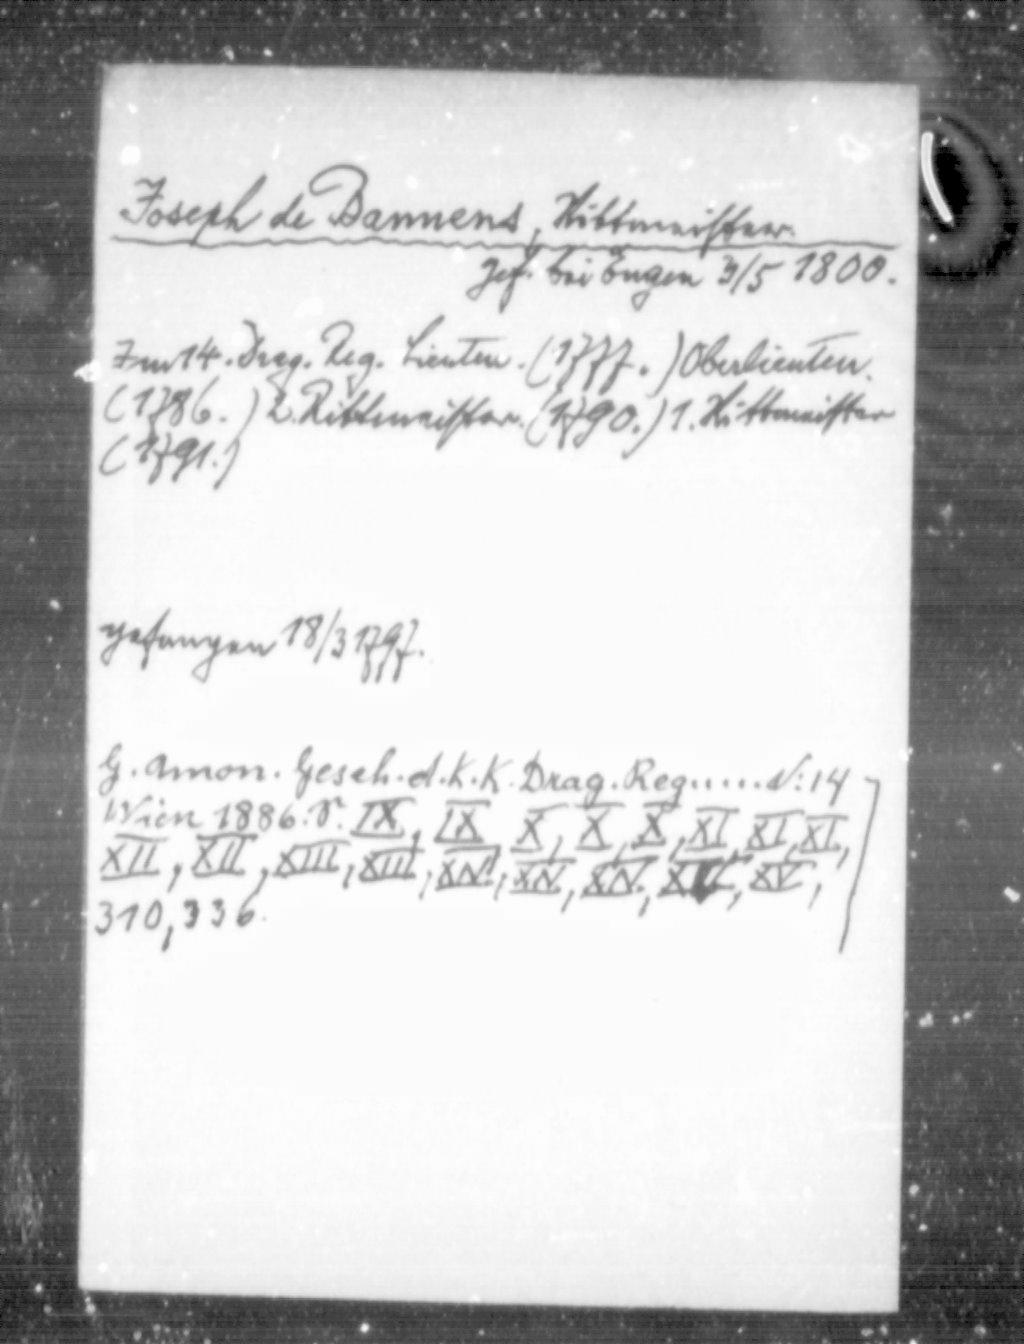 Joseph de Bannens, Rittmeister.
gef. bei Engen 3/5 1800.
Im 14. Drag. Reg. Lieuten. (1777.) Oberlieuten.
(1786.) 2. Rittmeister. (1790.) 1. Rittmeister
(1791.)
gefangen 18/3 1797.
G. Amon. Gesch. d. K. K. Drag. Reg..... N: 14
Wien 1886. S. IX, IX X, X, X, XI, XI, XI,
XII, XII, XIII, XIII, XIV, XIV, XIV, XV, XV,
310, 336.